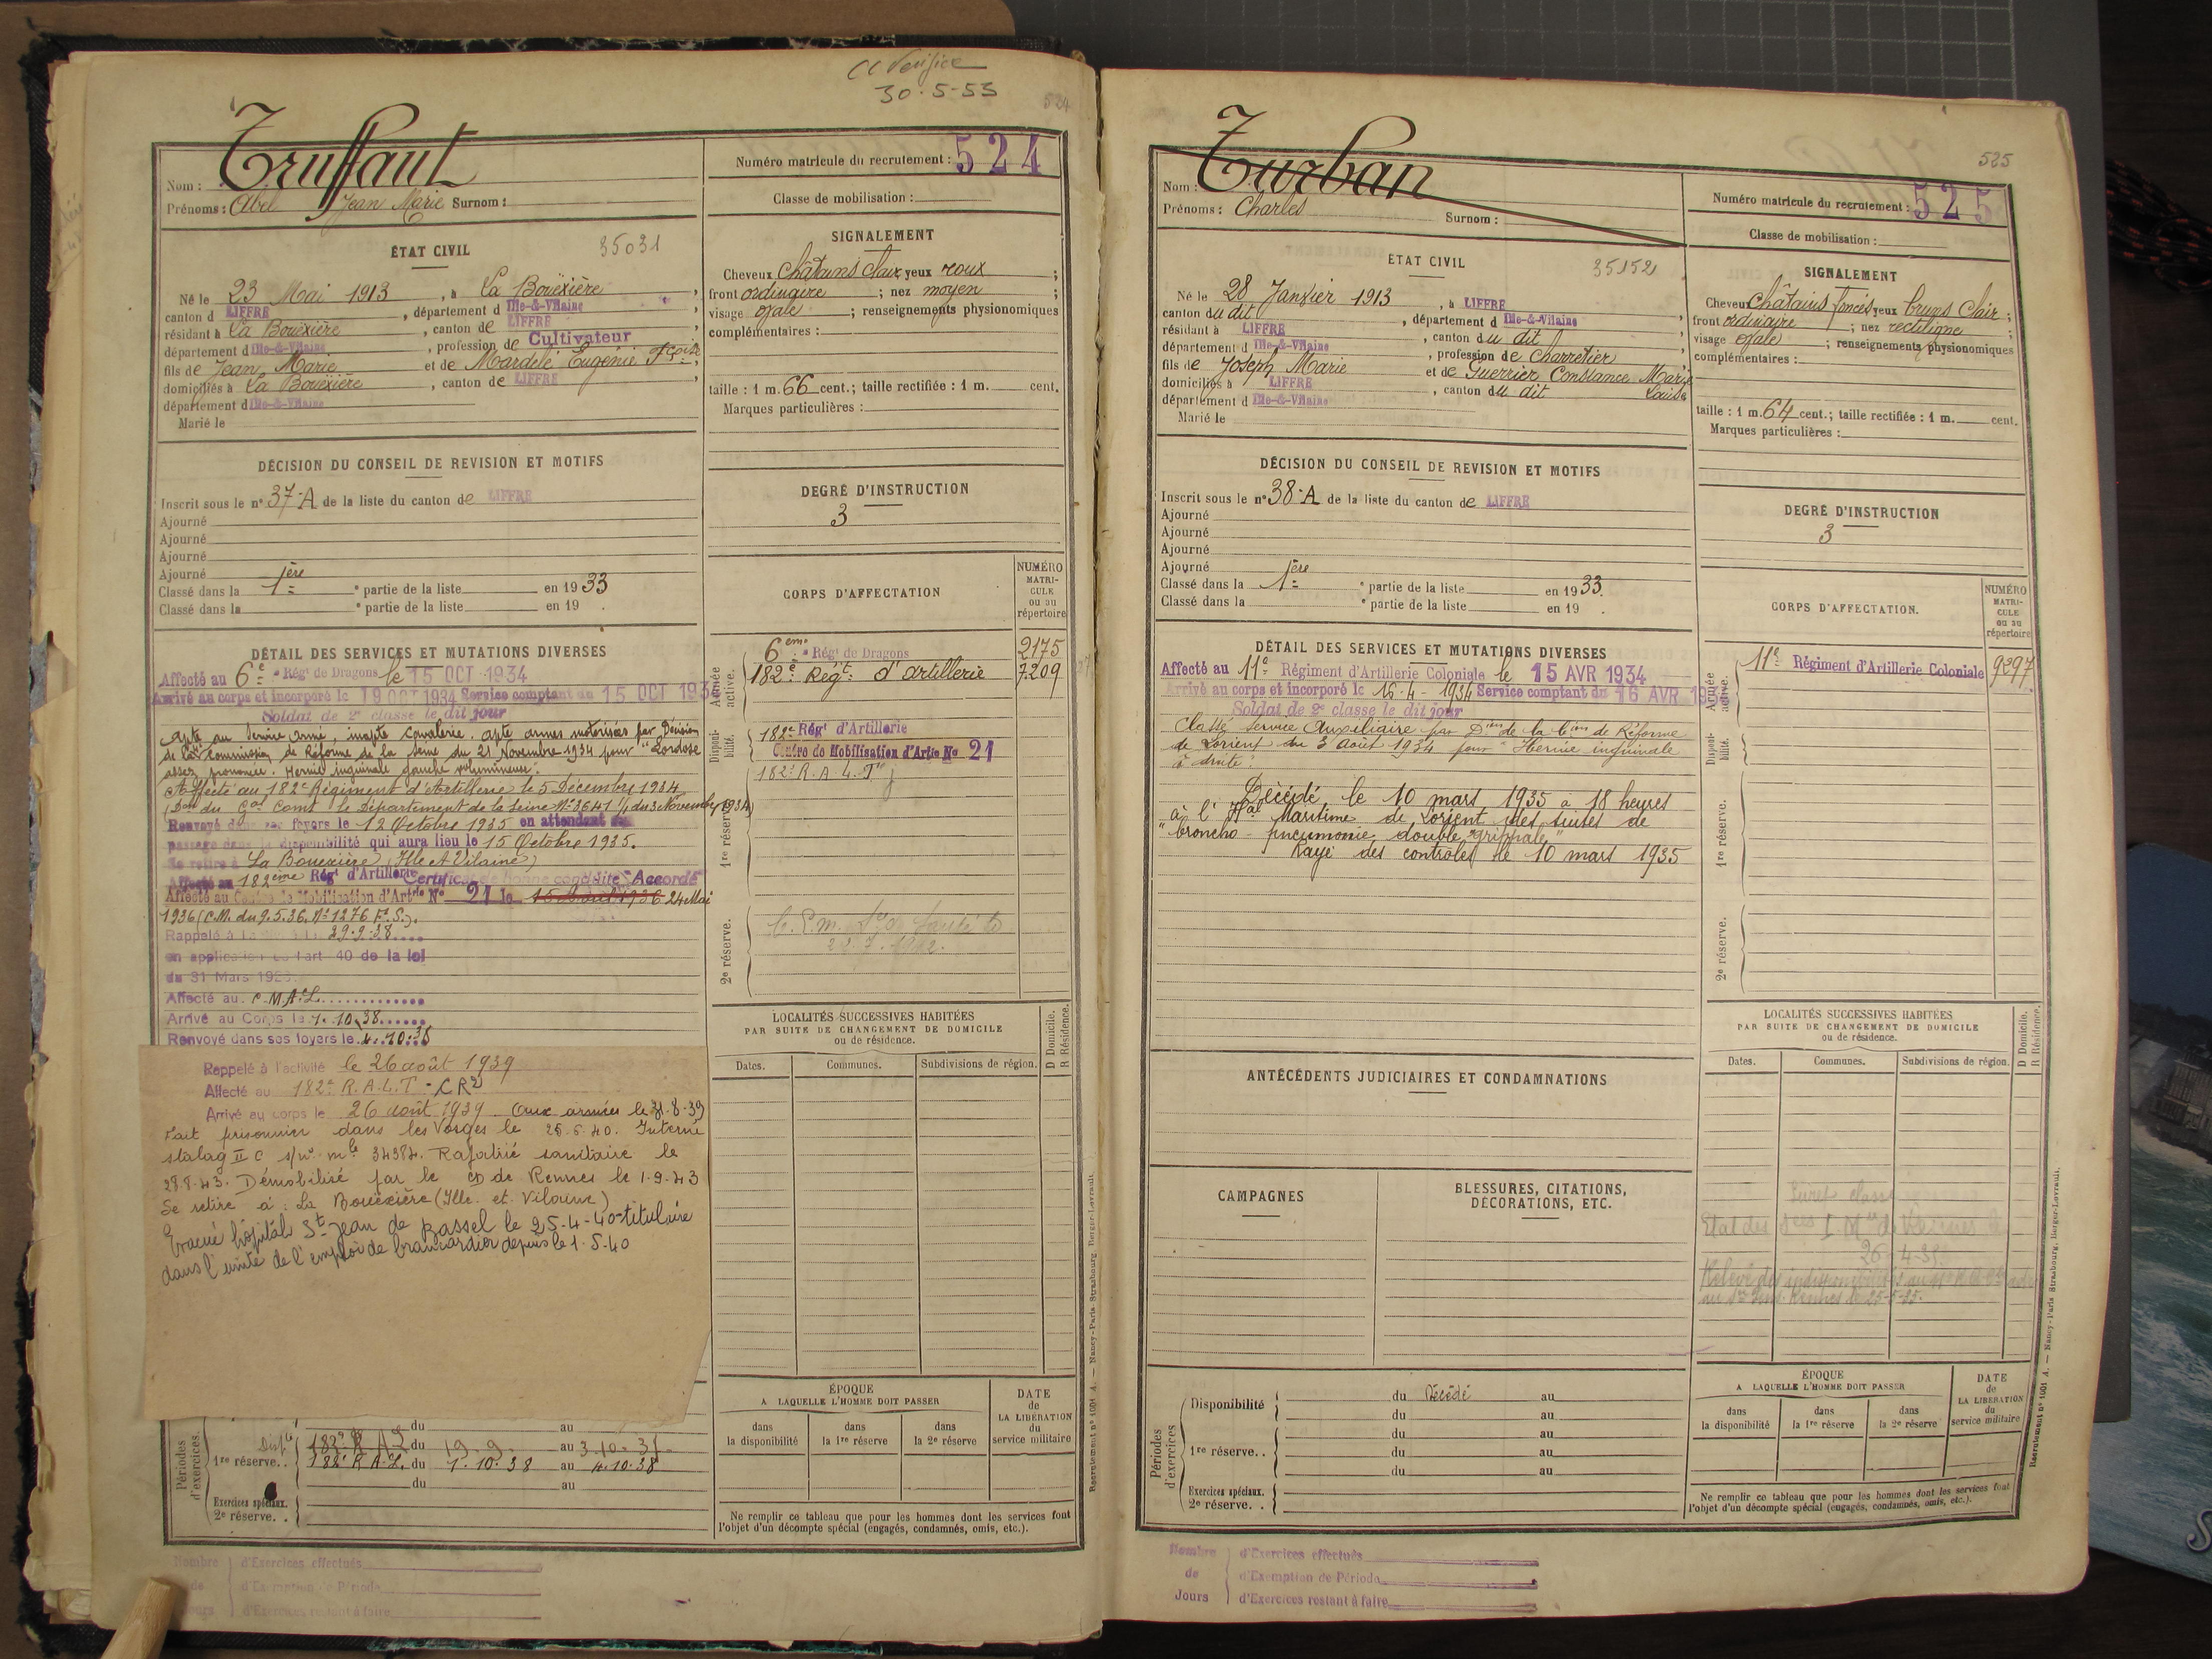 CC Vérifiée
30.5-53
524
Nom : Truffaut
Prénoms : Abel Jean Marie Surnom :
Numéro matricule du recrutement : 524
Classe de mobilisation :
ÉTAT CIVIL 35031
Né le 23 Mai 1913, à La Bouëxière,
canton d LIFFRÉ, département d Ille-&-Vilaine,
résidant à La Bouëxière, canton de LIFFRÉ
département d Ille-&-Vilaine, profession de Cultivateur
fils de Jean Marie et de Mardelé Eugénie Fçoise,
domiciliés à La Bouëxière, canton de LIFFRÉ,
département d Ille-&-Vilaine
Marié le
SIGNALEMENT
Cheveux châtains clair yeux roux ;
front ordinaire ; nez moyen ;
visage ovale ; renseignements physionomiques
complémentaires :
taille : 1 m. 66 cent. ; taille rectifiée : 1 m. cent.
Marques particulières :
DÉCISION DU CONSEIL DE REVISION ET MOTIFS
Inscrit sous le n° 37-A de la liste du canton de LIFFRÉ
Ajourné
Ajourné
Ajourné
Ajourné
Classé dans la 1ère partie de la liste en 1933
Classé dans la partie de la liste en 19 .
DEGRÉ D'INSTRUCTION
3
CORPS D'AFFECTATION
NUMÉRO
MATRI-
CULE
ou au
répertoire
Armée active.
6ème Régt de Dragons 2175
182e Régt d'artillerie 7209
Disponibilité.
182e Régt d'Artillerie
Centre de Mobilisation d'Artie No 21
182e R.A.L.T
1re réserve.
2e réserve.
DÉTAIL DES SERVICES ET MUTATIONS DIVERSES
Affecté au 6e Régt de Dragons le 15 OCT 1934
Arrivé au corps et incorporé le 19 OCT 1934 Service comptant du 15 OCT 1934
Soldat de 2e classe le dit jour
Apte au Service armé, inapte cavalerie, apte armes motorisées par Décision
de la commission de Réforme de la Seine du 21 Novembre 1934 pour "Lordose
assez prononcée. Hernie inguinale gauche volumineuse".
Affecté au 182e Régiment d'Artillerie le 5 Décembre 1934
(Don du Gal Comt le Département de la Seine No 3641 1/1 du 3 Novembre 1934)
Renvoyé dans ses foyers le 12 Octobre 1935 en attendant son
passage dans la disponibilité qui aura lieu le 15 Octobre 1935.
Se retire à La Bouexière (Ille et Vilaine)
Affecté au 182ème Régt d'Artillerie Certificat de bonne conduite "Accordé"
Affecté au Centre de Mobilisation d'Artie No 21 le 15 Avril 1936 24 Mai
1936 (C.M. du 9.5.36. No 1276 Ft. S.).
Rappelé à l'activité le 29.9.38
en application de l'art 40 de la loi
du 31 Mars 1928.
Affecté au C.M.A.L.
Arrivé au Corps le 1.10.38
Renvoyé dans ses foyers le 4.10.38
Rappelé à l'activité le 26 août 1939
Affecté au 182e R.A.L.T - CR2
Arrivé au corps le 26 août 1939 Aux armées le 31.8.39
Fait prisonnier dans les Vosges le 25.6.40. Interné
stalag II C s/no mle 34384. Rapatrié sanitaire le
28.8.43. Démobilisé par le CD de Rennes le 1.9.43
Se retire à : La Bouëxière (Ille. et. Vilaine)
Evacué hôpital St Jean de Bassel le 25-4-40 titulaire
dans l'unité de l'emploi de brancardier depuis le 1.5.40
LOCALITÉS SUCCESSIVES HABITÉES
PAR SUITE DE CHANGEMENT DE DOMICILE
ou de résidence.
D Domicile.
R Résidence.
Dates. Communes. Subdivisions de région.
ÉPOQUE
A LAQUELLE L'HOMME DOIT PASSER
dans la disponibilité
dans la 1re réserve
dans la 2e réserve
DATE
de
LA LIBÉRATION
du
service militaire
Ne remplir ce tableau que pour les hommes dont les services font
l'objet d'un décompte spécial (engagés, condamnés, omis, etc.).
Périodes d'exercices.
du au
1re réserve. .
182e R.A.L. du 1.10.38 au 4.10.38
du au
Exercices spéciaux.
2e réserve. .
Nombre de Jours
d'Exercices effectués
d'Exemption de Période
d'Exercices restant à faire
Recrutement n° 1001 A. — Nancy-Paris-Strasbourg, Berger-Levrault.
525
Nom : Turban
Prénoms : Charles Surnom :
Numéro matricule du recrutement : 525
Classe de mobilisation :
ÉTAT CIVIL 35152
Né le 28 Janvier 1913, à LIFFRÉ
canton du dit, département d Ille-&-Vilaine
résidant à LIFFRÉ, canton du dit
département d Ille-&-Vilaine, profession de Charretier
fils de Joseph Marie et de Guerrier Constance Marie
Louise
domiciliés à LIFFRÉ, canton du dit
département d Ille-&-Vilaine
Marié le
SIGNALEMENT
Cheveux châtains foncés yeux bruns clair ;
front ordinaire ; nez rectiligne ;
visage ovale ; renseignements physionomiques
complémentaires :
taille : 1 m. 64 cent. ; taille rectifiée : 1 m. cent.
Marques particulières :
DÉCISION DU CONSEIL DE REVISION ET MOTIFS
Inscrit sous le n° 38-A de la liste du canton de LIFFRÉ
Ajourné
Ajourné
Ajourné
Ajourné
Classé dans la 1ère partie de la liste en 1933.
Classé dans la partie de la liste en 19 .
DEGRÉ D'INSTRUCTION
3
CORPS D'AFFECTATION.
NUMÉRO
MATRI-
CULE
ou au
répertoire
Armée active.
11e Régiment d'Artillerie Coloniale 9297
Disponibilité.
1re réserve.
2e réserve.
DÉTAIL DES SERVICES ET MUTATIONS DIVERSES
Affecté au 11e Régiment d'Artillerie Coloniale le 15 AVR 1934
Arrivé au corps et incorporé le 16-4-1934 Service comptant du 16 AVR 1934
Soldat de 2e classe le dit jour
Classé Service Auxiliaire par Don de la Con de Réforme
de Lorient du 3 août 1934 pour "Hernie inguinale
à droite".
Décédé le 10 mars 1935 à 18 heures
à l'Hal Maritime de Lorient des suites de
"broncho-pneumonie double grippale"
Rayé des contrôles le 10 mars 1935
ANTÉCÉDENTS JUDICIAIRES ET CONDAMNATIONS
CAMPAGNES
BLESSURES, CITATIONS,
DÉCORATIONS, ETC.
LOCALITÉS SUCCESSIVES HABITÉES
PAR SUITE DE CHANGEMENT DE DOMICILE
ou de résidence.
D Domicile.
R Résidence.
Dates. Communes. Subdivisions de région.
Périodes d'exercices
Disponibilité du Décédé au
du au
du au
1re réserve. . du au
du au
Exercices spéciaux.
2e réserve. .
ÉPOQUE
A LAQUELLE L'HOMME DOIT PASSER
dans la disponibilité
dans la 1re réserve
dans la 2e réserve
DATE
de
LA LIBÉRATION
du
service militaire
Ne remplir ce tableau que pour les hommes dont les services font
l'objet d'un décompte spécial (engagés, condamnés, omis, etc.).
Nombre de Jours
d'Exercices effectués
d'Exemption de Période
d'Exercices restant à faire
Recrutement n° 1001 A. — Nancy-Paris-Strasbourg, Berger-Levrault.